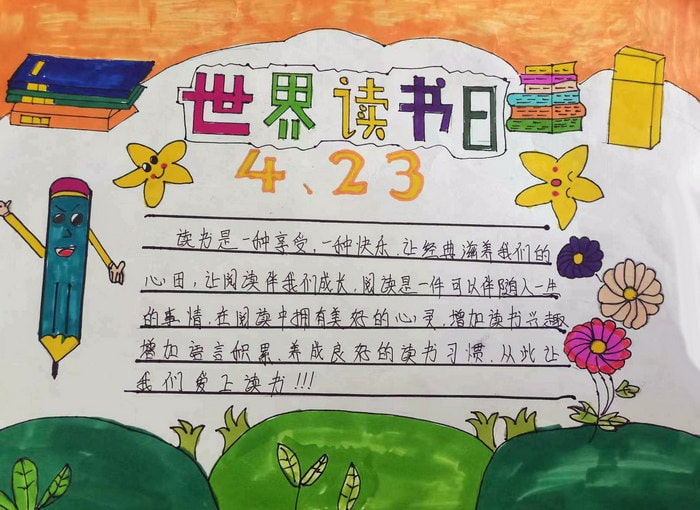 世界读书日
4、23
读书是一种享受,一种快乐.让经典滋养我们的
心田,让阅读伴我们成长.阅读是一件可以伴随人一生
的事情.在阅读中拥有美好的心灵,增加读书兴趣
增加语言积累.养成良好的读书习惯.从此让
我们爱上读书!!!